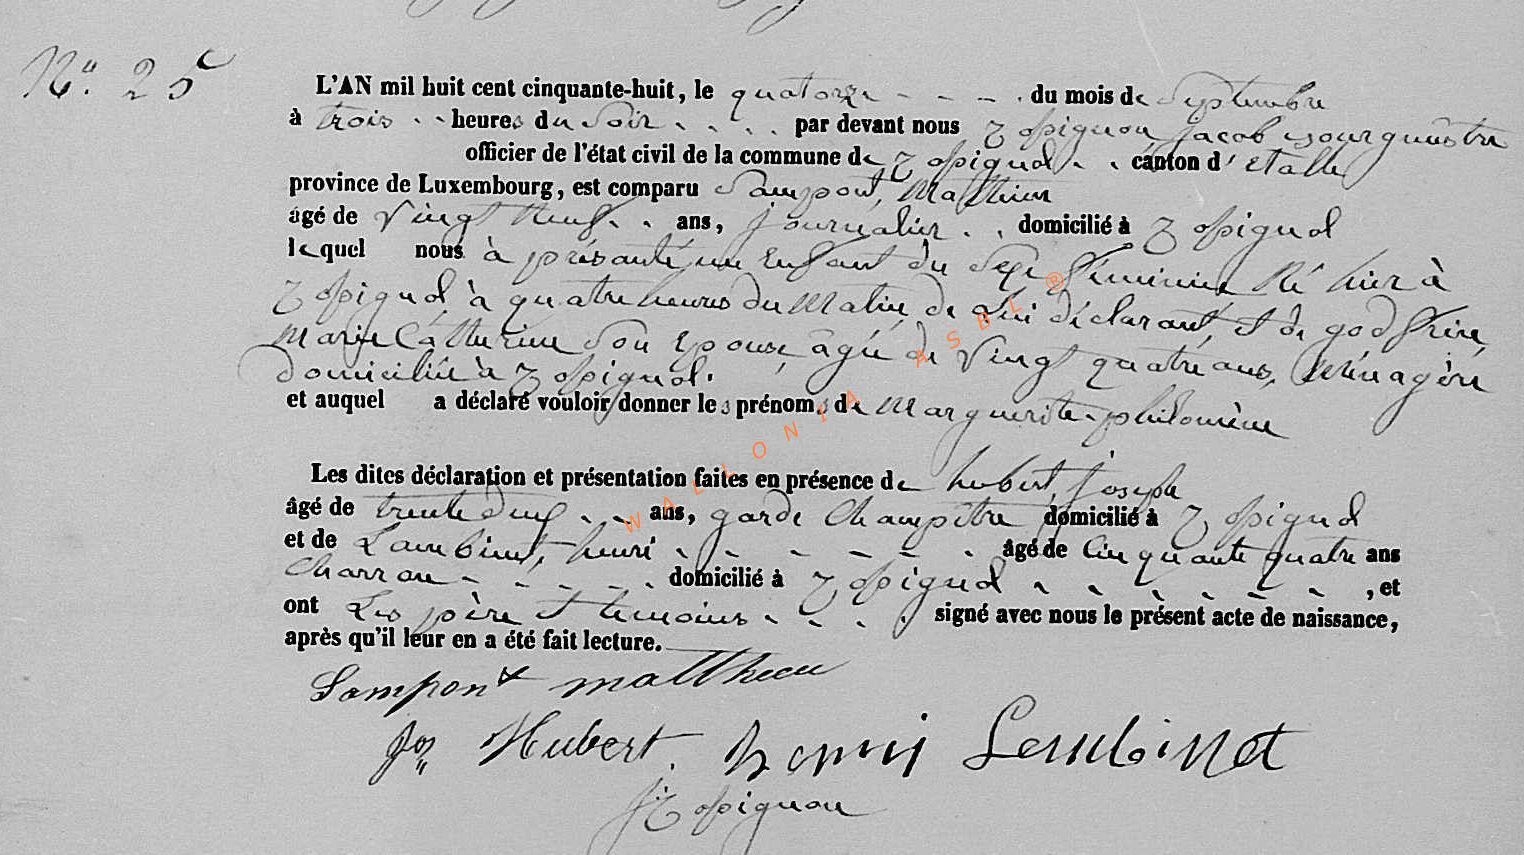 N° 25
L'AN mil huit cent cinquante-huit, le quatorze - - - - du mois de Septembre
à trois - - heures du Soir - - - - par devant nous Rossignon Jacob bourgmestre
officier de l'état civil de la commune de Rossignol - - canton d'Etalle
province de Luxembourg, est comparu Sampont, Mathieu
âgé de Vingt neuf - - ans, journalier - - domicilié à Rossignol
lequel nous à présenté un Enfant du Sexe féminin Né hier à
Rossignol à quatre heures du Matin, de Lui déclarant, et de godfrin,
Marie Catherine Son Epouse, âgée de Vingt quatre ans, Ménagère
domiciliée à Rossignol.
et auquel a déclaré vouloir donner les prénoms de Marguerite-philomène
Les dites déclaration et présentation faites en présence de hubert, Joseph
âgé de trente deux - - ans, garde Champêtre domicilié à Rossignol
et de Lambinet, henri - - - - - - âgé de Cinquante quatre ans
Charron - - - - - domicilié à Rossignol - - - - - - , et
ont Les père et temoins - - - - signé avec nous le présent acte de naissance,
après qu'il leur en a été fait lecture.
Sampont mathieu
Jos Hubert. henri Lambinet
J Rossignon
WALLONIA ASBL ®